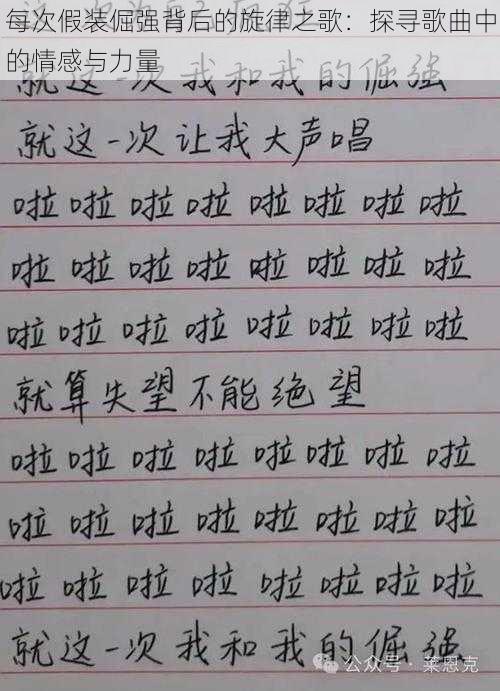 每次假装倔强背后的旋律之歌：探寻歌曲中
的情感与力量
就这一次我和我的倔强
就这一次让我大声唱
啦啦啦啦啦啦啦啦
啦啦啦啦啦啦啦啦
啦啦啦啦啦啦啦啦
就算失望不能绝望
啦啦啦啦啦啦啦啦
啦啦啦啦啦啦啦啦
啦啦啦啦啦啦啦啦
就这一次我和我的倔强
公众号·莱恩克